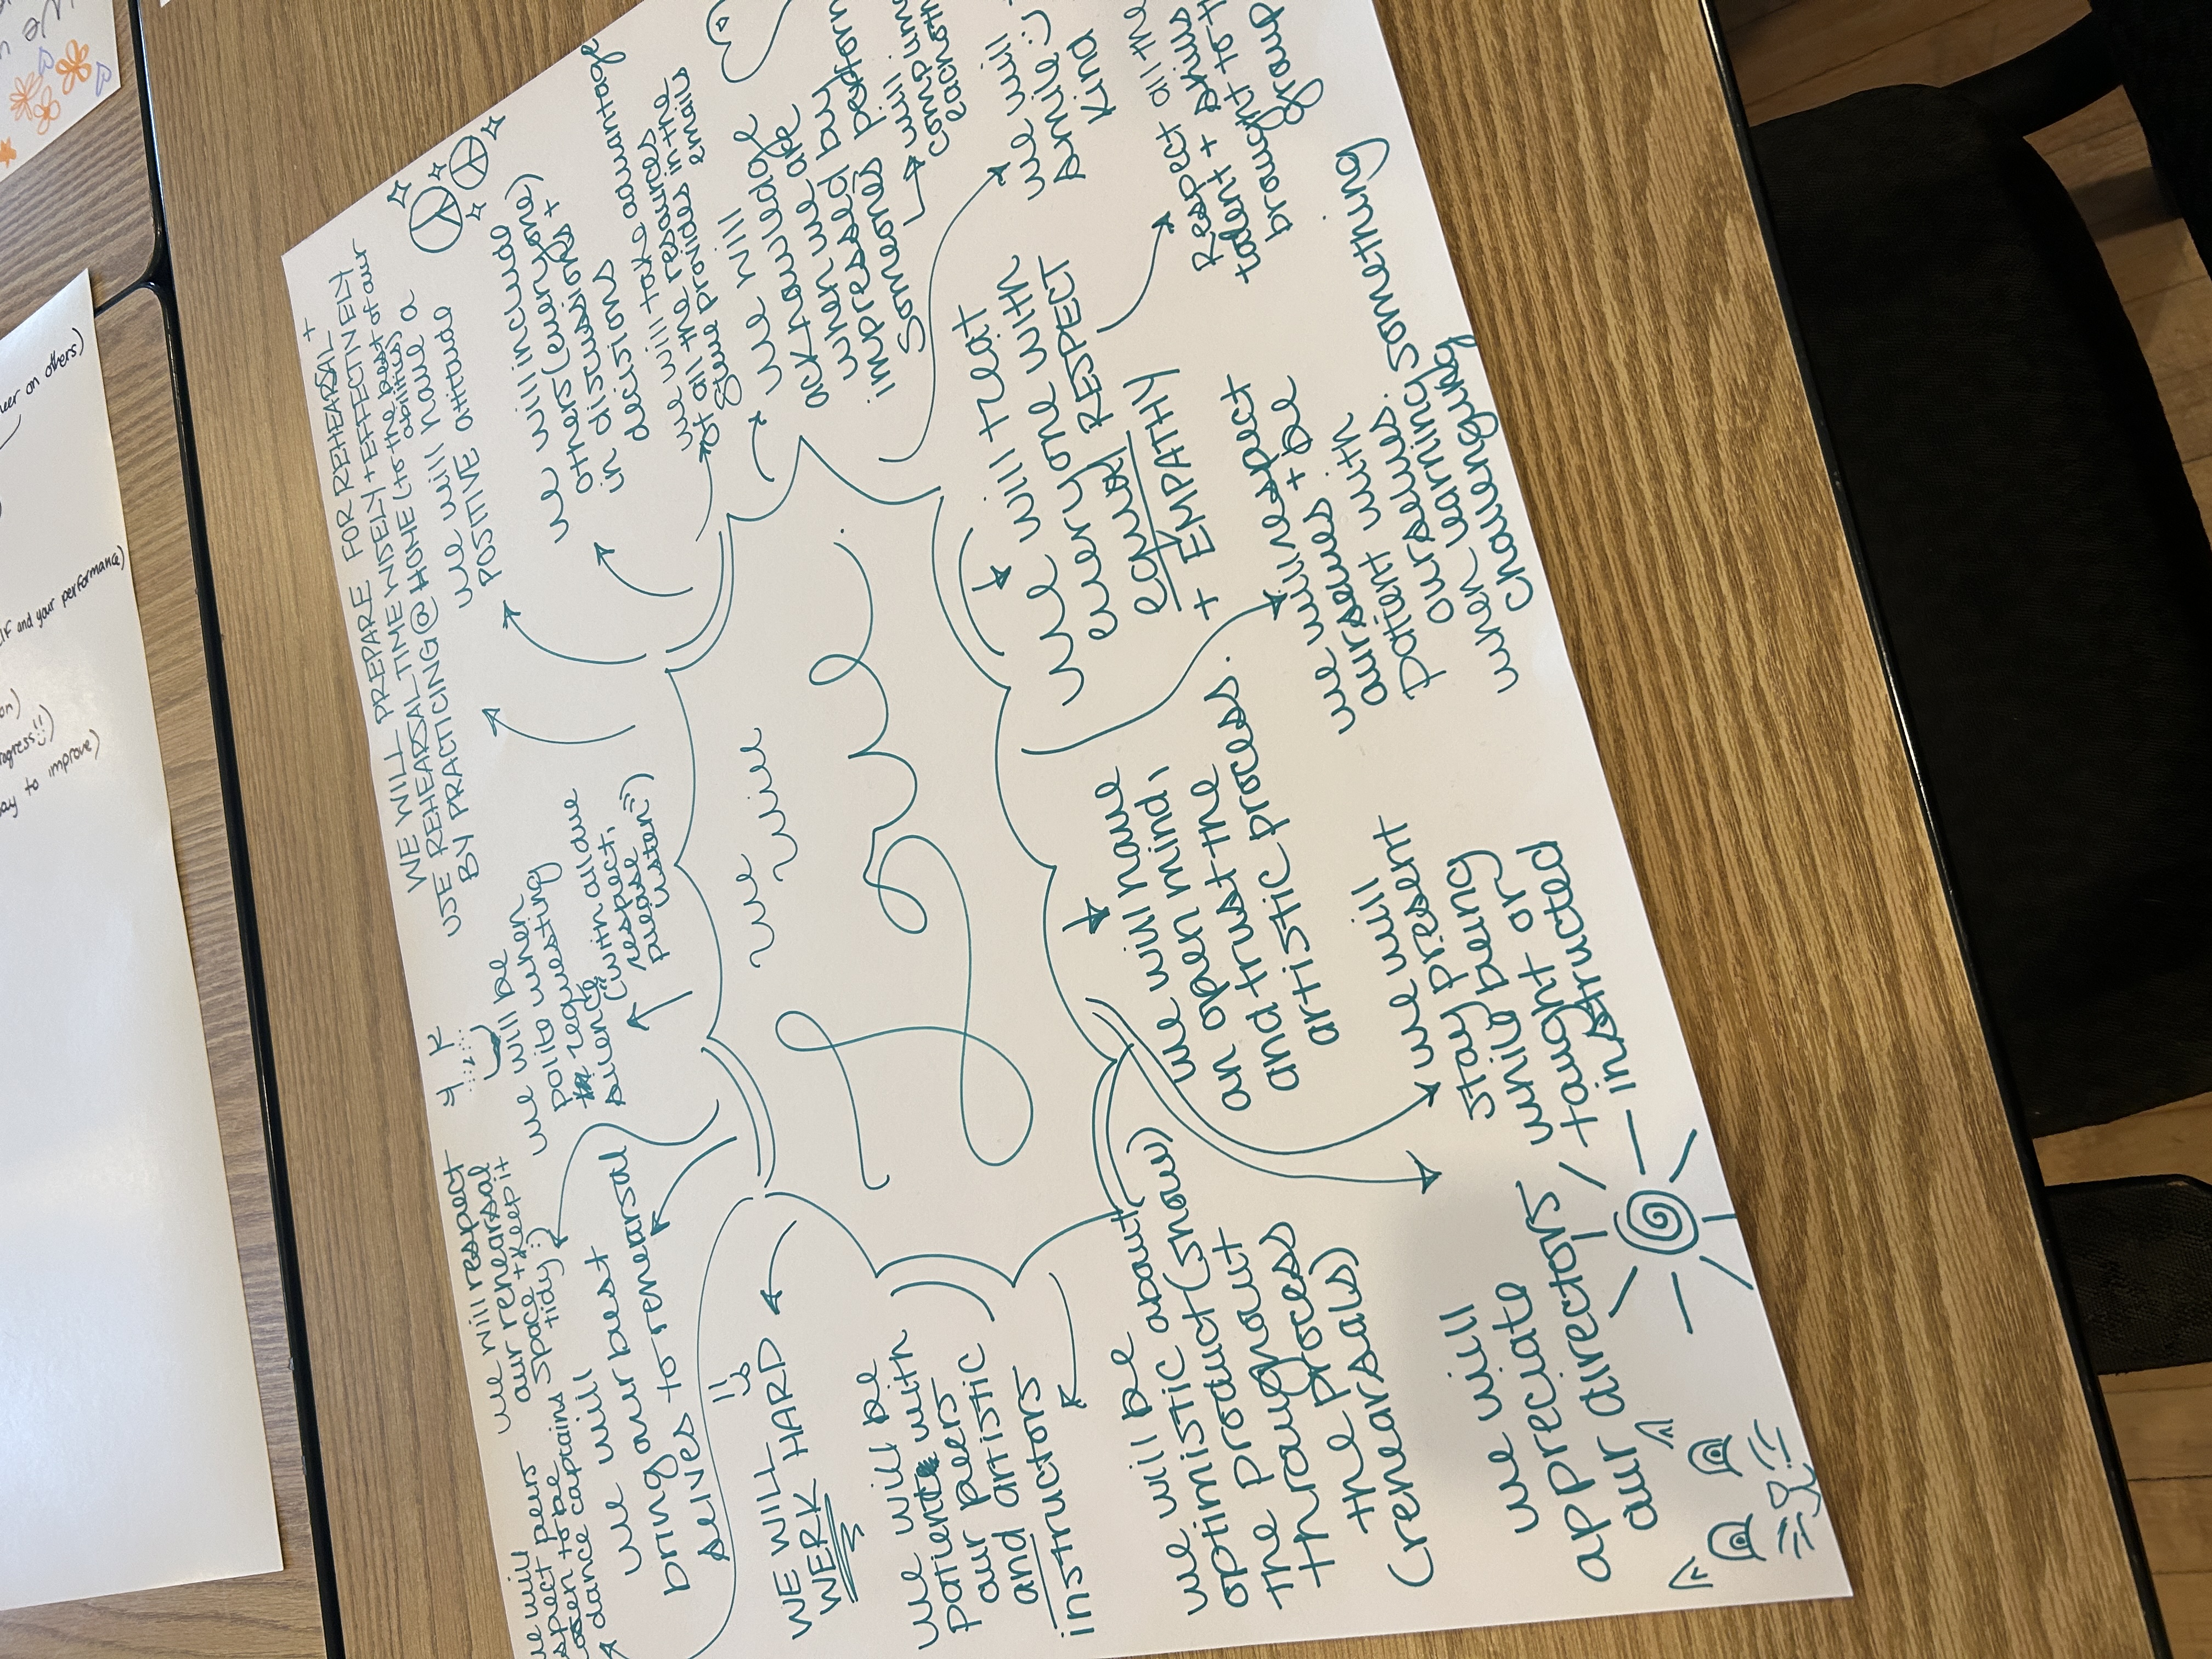 we will
WE WILL PREPARE FOR REHEARSAL +
USE REHEARSAL TIME WISELY + EFFECTIVELY
BY PRACTICING @ HOME (to the best of our
abilities)
we will have a
POSITIVE attitude
we will include
others (everyone)
in discussions +
decisions
we will take advantage
of all the resources
provides in the
emails
we will
acknowledge
when we are
impressed by
someones
→ will
we will
smile :)
kind
we will treat
everyone with
equal RESPECT
+ EMPATHY
Respect all the
talent +
brought to
group
we will respect
ourselves + be
patient with
ourselves.
when learning something
challenging
we will have
an open mind,
and trust the
artistic process.
we will
stay present
while being
taught or
instructed
we will be
optimistic (about)
the product (show)
throughout
the process
(rehearsals)
we will
appreciate
our directors
we will be
patient with
our peers
and artistic
instructors
WE WILL
WERK HARD
we will
bring our best
selves to rehearsal
we will
peers
to be
dance captains
we will respect
our rehearsal
space + keep it
tidy :)
we will be
polite when
requesting
silence
("with all due
respect,
please
listen" :)
eer on others)
and your performance)
on)
ogress!!)
ay to improve)